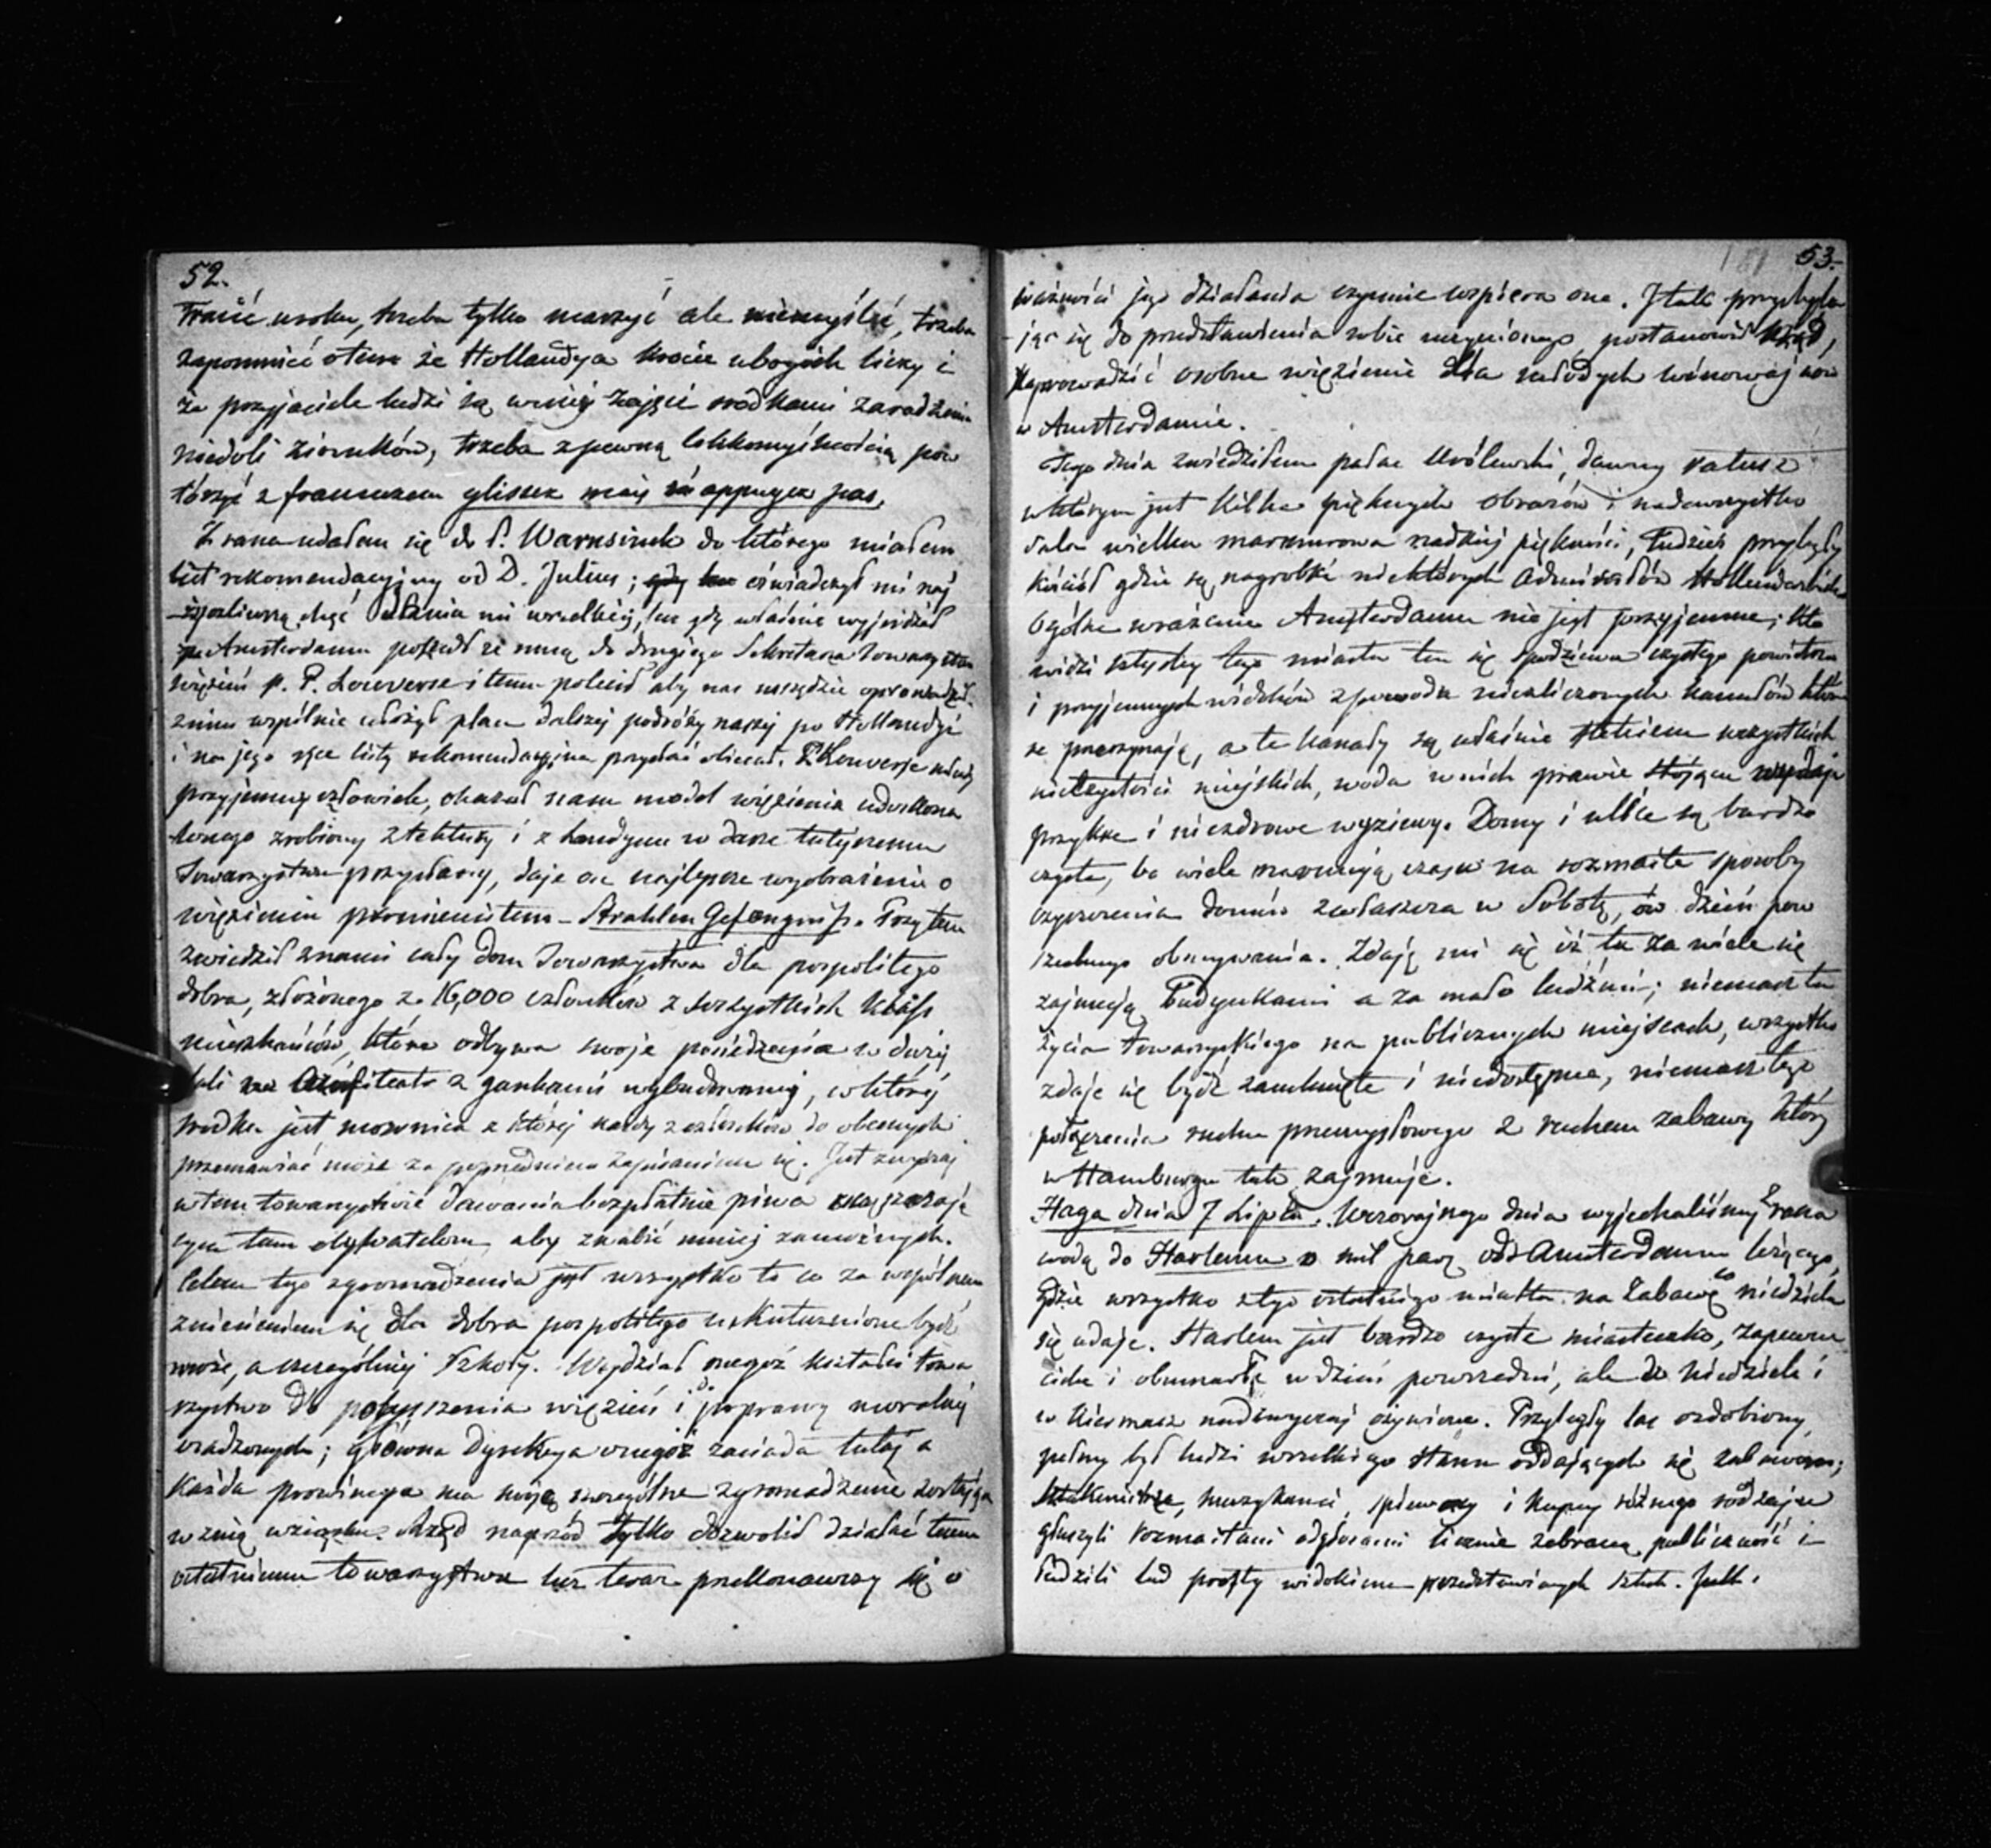 52.
trácić uroku, trzeba tylko marzyć ale niemyślić, trzeba
zapomnieć otem że Hollandya krocie ubogich liczy i
że przyjaciele ludzi są w niej zajęci srodkami zaradzenia
niedoli ziomków, trzeba z pewną lekkomyślnością pow
tórzyć z francuzem glissez mais n'appuyez pas.
Z rana udałem się do P. Warnsinck do którego miałem
list rekomendacyjny od D. Julius; oświadczył mi naj
życzliwszą chęć mi wszelkiej, lecz gdy właśnie wyjeżdżał
z Amsterdamu poszedł ze mną do drugiego Sekretarza Towarzystwa
więzień p. P. Louverse i temu polecił aby nas wszędzie oprowadził
z nim wspólnie ułożył plan dalszej podróży naszej po Hollandyi
i na jego ręce listy rekomendacyjne przysłać obiecał. P. Louverse młody
przyjemny człowiek, okazał nam model więzienia udoskona
lonego zrobiony z tektury i z Londynu w darze tutejszemu
Towarzystwu przysłany, daje on najlepsze wyobrażenie o
więzieniu promienistem – Strahlen Gefängniss. Przytem
zwiedził z nami cały dom Towarzystwa dla pospolitego
dobra, złożonego z 16,000 członków z wszystkich klass
mieszkańców, które odbywa swoje posiedzenia w dużej
sali w Amfiteatr z gankami wybudowanej, w której
srodku jest mownica z której każdy z członków do obecnych
przemawiać może za poprzedniem zapisaniem się. Jest zwyczaj
w tem towarzystwie dawania bezpłatnie piwa
cym tam obywatelom, aby zwabić mniej zamożnych.
Celem tego zgromadzenia jest wszystko to co za wspólnem
zniesieniem się dla dobra pospolitego uskutecznione bydź
może, a szczególniej Szkoły. Wydział onegoż kształci towa
rzystwo do polepszenia więzień i do poprawy moralnej
osadzonych; główna Dyrekcya onegoż zasiada tutaj a
każda prowincya ma swoje szczególne zgromadzenie zostające
w związku. Rząd naprzód tylko dozwolił działać temu
ostatniemu towarzystwu lecz teraz przekonawszy się o
53.
ważności jego działania czynnie wspiera one. I tak przychyla
jąc się do przedstawienia sobie uczynionego, postanowił Rząd,
zaprowadzić osobne więzienie dla młodych winowajców
w Amsterdamie.
Tego dnia zwiedziłem pałac Królewski, dawny ratusz
w którym jest kilka pięknych obrazów i nadewszystko
sala wielka marmurowa rzadkiej piękności, tudzież przyległy
kościół gdzie są nagrobki niektórych Admirałów Hollenderskich
Ogólne wrażenie Amsterdamu nie jest przyjemne; kto
widzi sztychy tego miasta ten się spodziewa czystego powietrza
i przyjemnych widoków z powodu niezliczonych kanałów które
je przerzynają, a te kanały są właśnie wszystkich
nieczystości miejskich, woda w nich prawie stojąca wydaje
przykre i niezdrowe wyziewy. Domy i ulice są bardzo
czyste, bo wiele marnują czasu na rozmaite sposoby
czyszczenia domów zwłaszcza w Sobotę, ów dzień pow
szechnego obmywania. Zdaję mi się iż tu za wiele się
zajmują budynkami a za mało ludźmi; niemasz tu
życia towarzyskiego na publicznych miejscach, wszystko
zdaje się bydź zamknięte i niedostępne, niemasz tego
połączenia ruchu przemysłowego z ruchem zabawy który
w Hamburgu tak zajmuje.
Haga dnia 7 Lipca. Wczorajszego dnia wyjechaliśmy z rana
wodą do Harlemu o mil parę od Amsterdamu leżącego,
gdzie wszystko z tego ostatniego miasta na zabawę co niedziela
się udaje. Harlem jest bardzo czyste miasteczko, zapewne
ciche i obumarłe w dzień powszedni, ale w Niedziele i
w kiermasz nadzwyczaj ożywione. Przyległy las ozdobiony,
pełny był ludzi wszelkiego stanu oddających się zabawom;
Sztukmistrze, muzykanci, spiewacy i kupcy różnego rodzaju
głuszyli rozmaitemi odgłosami licznie zebraną publiczność i
łudzili lud prosty widokiem przedstawianych sztuk. Jest